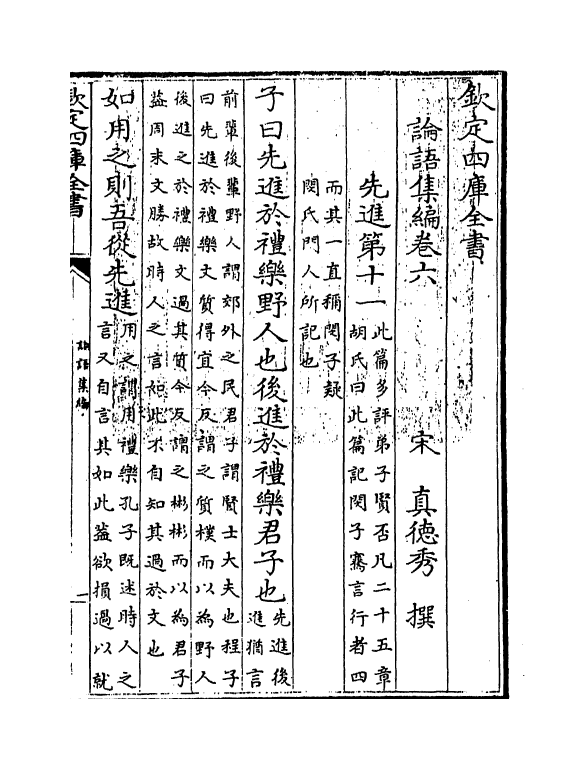 欽定四庫全書
論語集編卷六
宋 真德秀 撰
先進第十一
此篇多評弟子賢否凡二十五章
胡氏曰此篇記閔子騫言行者四
而其一直稱閔子疑
閔氏門人所記也
子曰先進於禮樂野人也後進於禮樂君子也
先進後
進猶言
前輩後輩野人謂郊外之民君子謂賢士大夫也程子
曰先進於禮樂文質得宜今反謂之質樸而以為野人
後進之於禮樂文過其質今反謂之彬彬而以為君子
葢周末文勝故時人之言如此不自知其過於文也
如用之則吾從先進
用之謂用禮樂孔子既述時人之
言又自言其如此葢欲損過以就
欽定四庫全書
論語集編
一